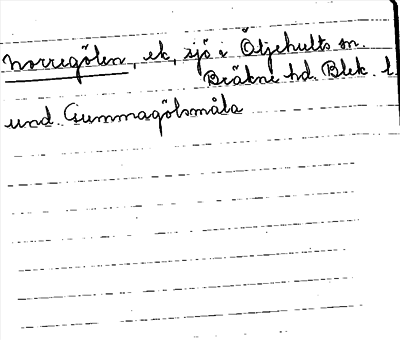 Norregölen, ek, sjö i Öljehults sn.
Bräkne hd. Blek. l.
und. Gummagölsmåla